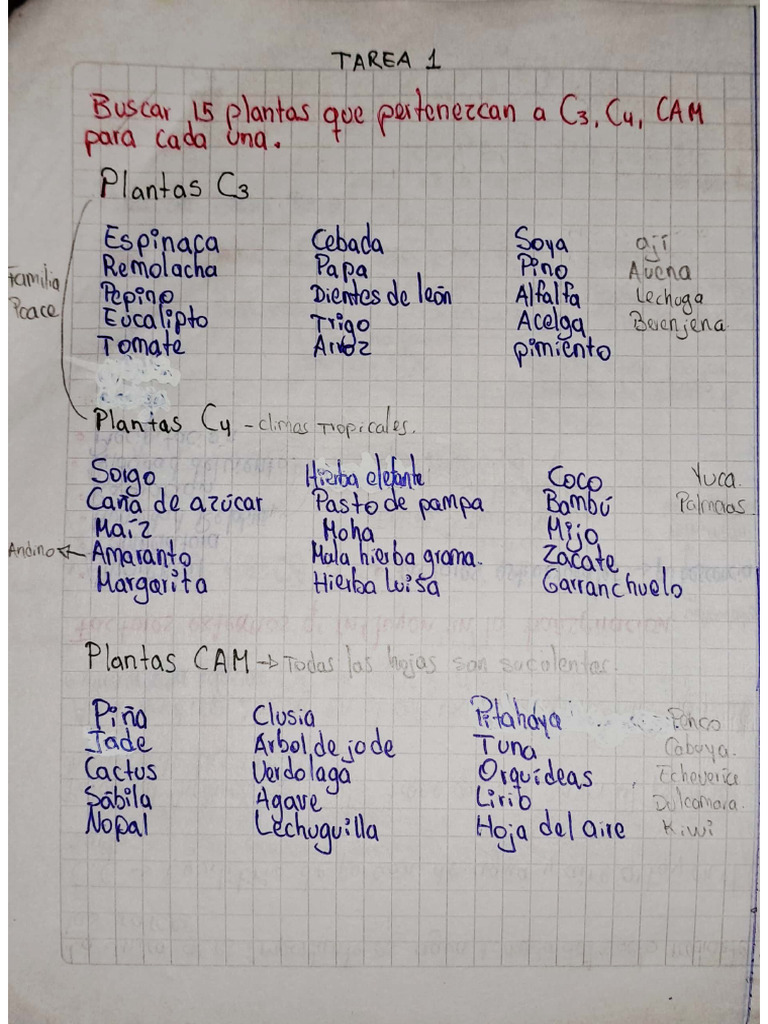 TAREA 1
Buscar 15 plantas que pertenezcan a C3, C4, CAM
para cada una.
Plantas C3
Espinaca Cebada Soya ají
Remolacha Papa Pino Avena
Pepino Dientes de león Alfalfa Lechuga
Eucalipto Trigo Acelga Berenjena
Tomate Arroz pimiento
Familia
Poace
Plantas C4 - climas Tropicales.
Sorgo Hierba elefante Coco Yuca
Caña de azúcar Pasto de pampa Bambú Palmeras
Maíz Moha Mijo
Andino ← Amaranto Mala hierba grama. Zacate
Margarita Hierba Luisa Garranchuelo
Plantas CAM → Todas las hojas son suculentas.
Piña Clusia Pitahaya Penco
Jade Arbol de jode Tuna Cabuya.
Cactus Verdolaga Orquídeas Echeverice
Sábila Agave Lirio Dulcamara.
Nopal Lechuguilla Hoja del aire Kiwi